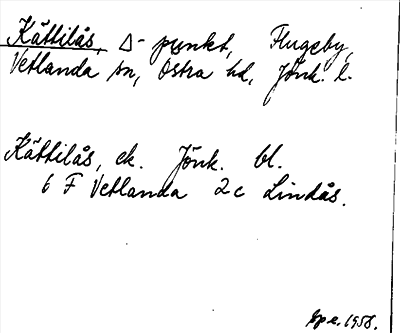 Kättilås, Δ-punkt, Flugeby,
Vetlanda sn, Östra hd, Jönk. l.
Kättilås, ek. Jönk. bl.
6 F Vetlanda 2c Lindås.
1958.